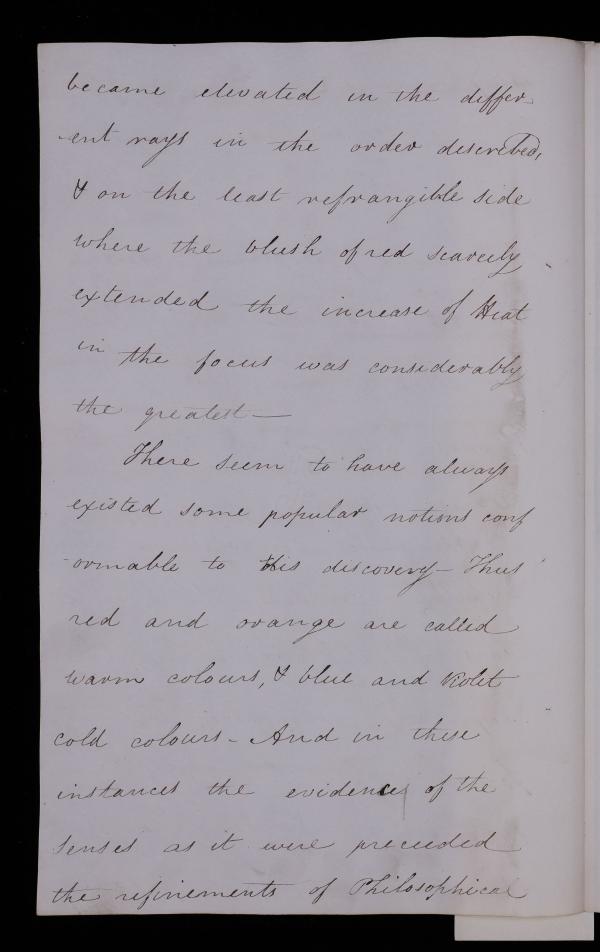 became elevated in the differ-
-ent rays in the order described,
& on the least refrangible side
where the blush of red scarcely
extended the increase of Heat
in the focus was considerably
the greatest —
There seem to have always
existed some popular notions conf
-ormable to this discovery – Thus
red and orange are called
warm colours, & blue and Violet
cold colours – And in these
instances the evidences of the
senses as it were preceeded
the refinements of Philosophical